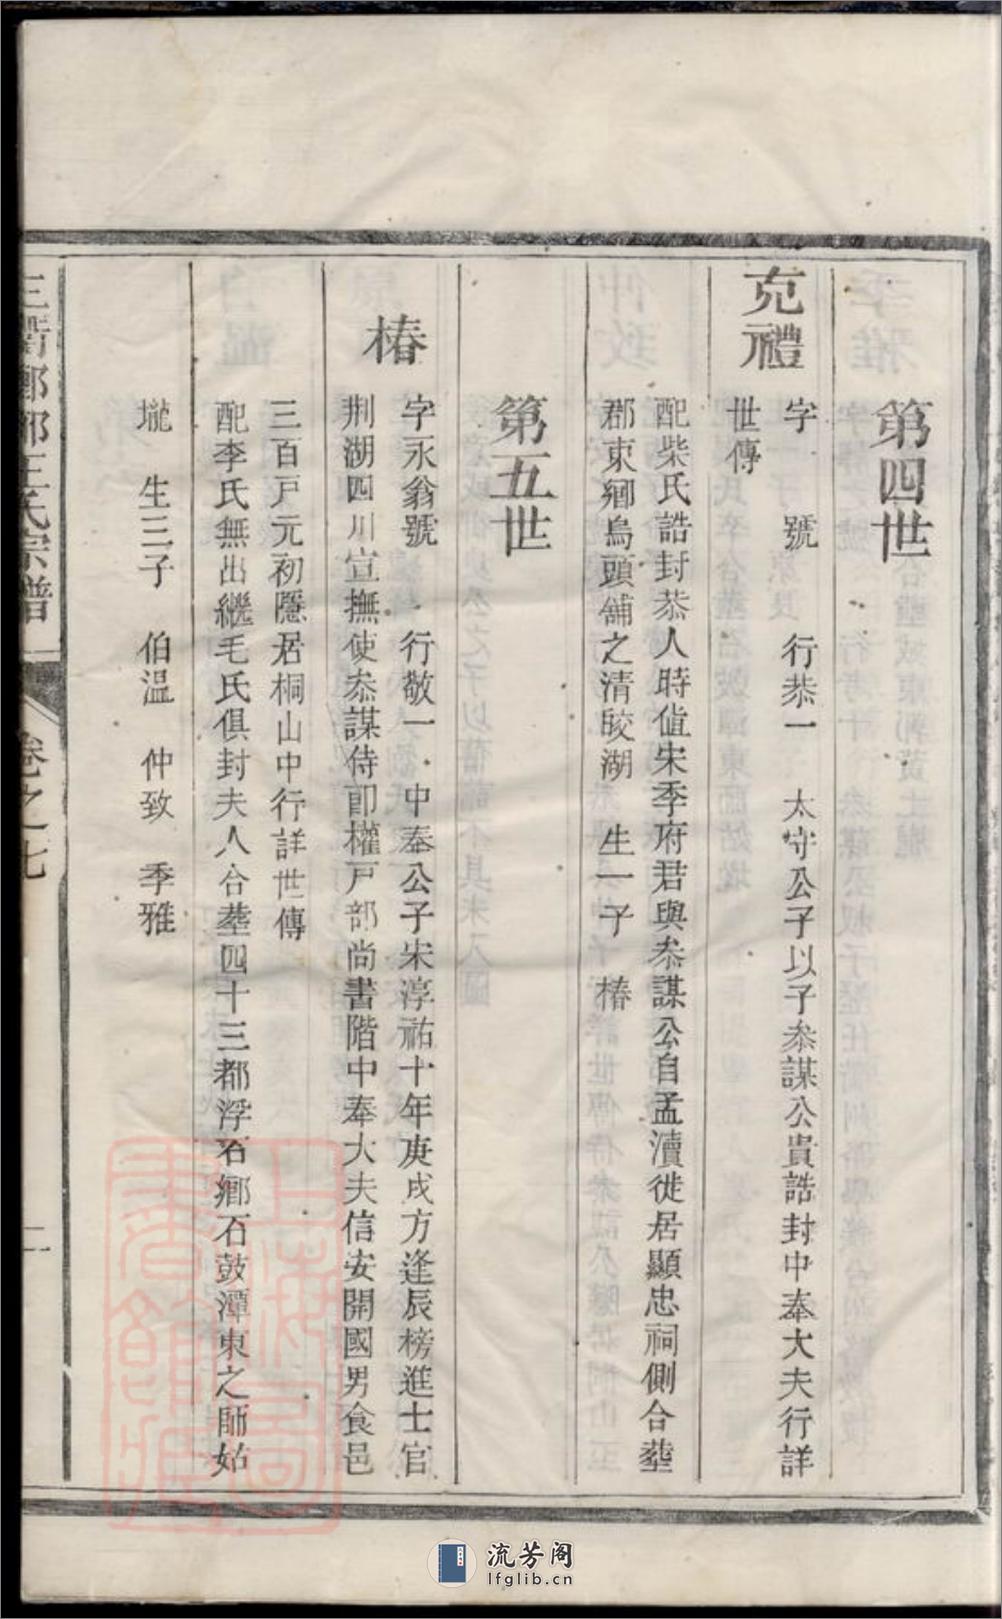 第四世
克禮
字　號　行恭一　太守公子以子叅謀公貴誥封中奉大夫行詳
世傳
配柴氏誥封恭人時值宋季府君與叅謀公自孟瀆徙居顯忠祠側合塟
郡東鄉烏頭舖之清㿟湖　生一子　椿
第五世
椿
字永翁號　行敬一　中奉公子宋淳祐十年庚戌方逢辰榜進士官
荆湖四川宣撫使叅謀侍郎權戸部尚書階中奉大夫信安開國男食邑
三百戸元初隱居桐山中行詳世傳
配李氏無出繼毛氏俱封夫人合塟四十三都浮石鄉石鼓潭東之師姑
壠　生三子　伯温　仲致　季雅
三衢鄭郭王氏宗譜
卷之七
二
上海圖書館藏
流芳阁
lfglib.cn